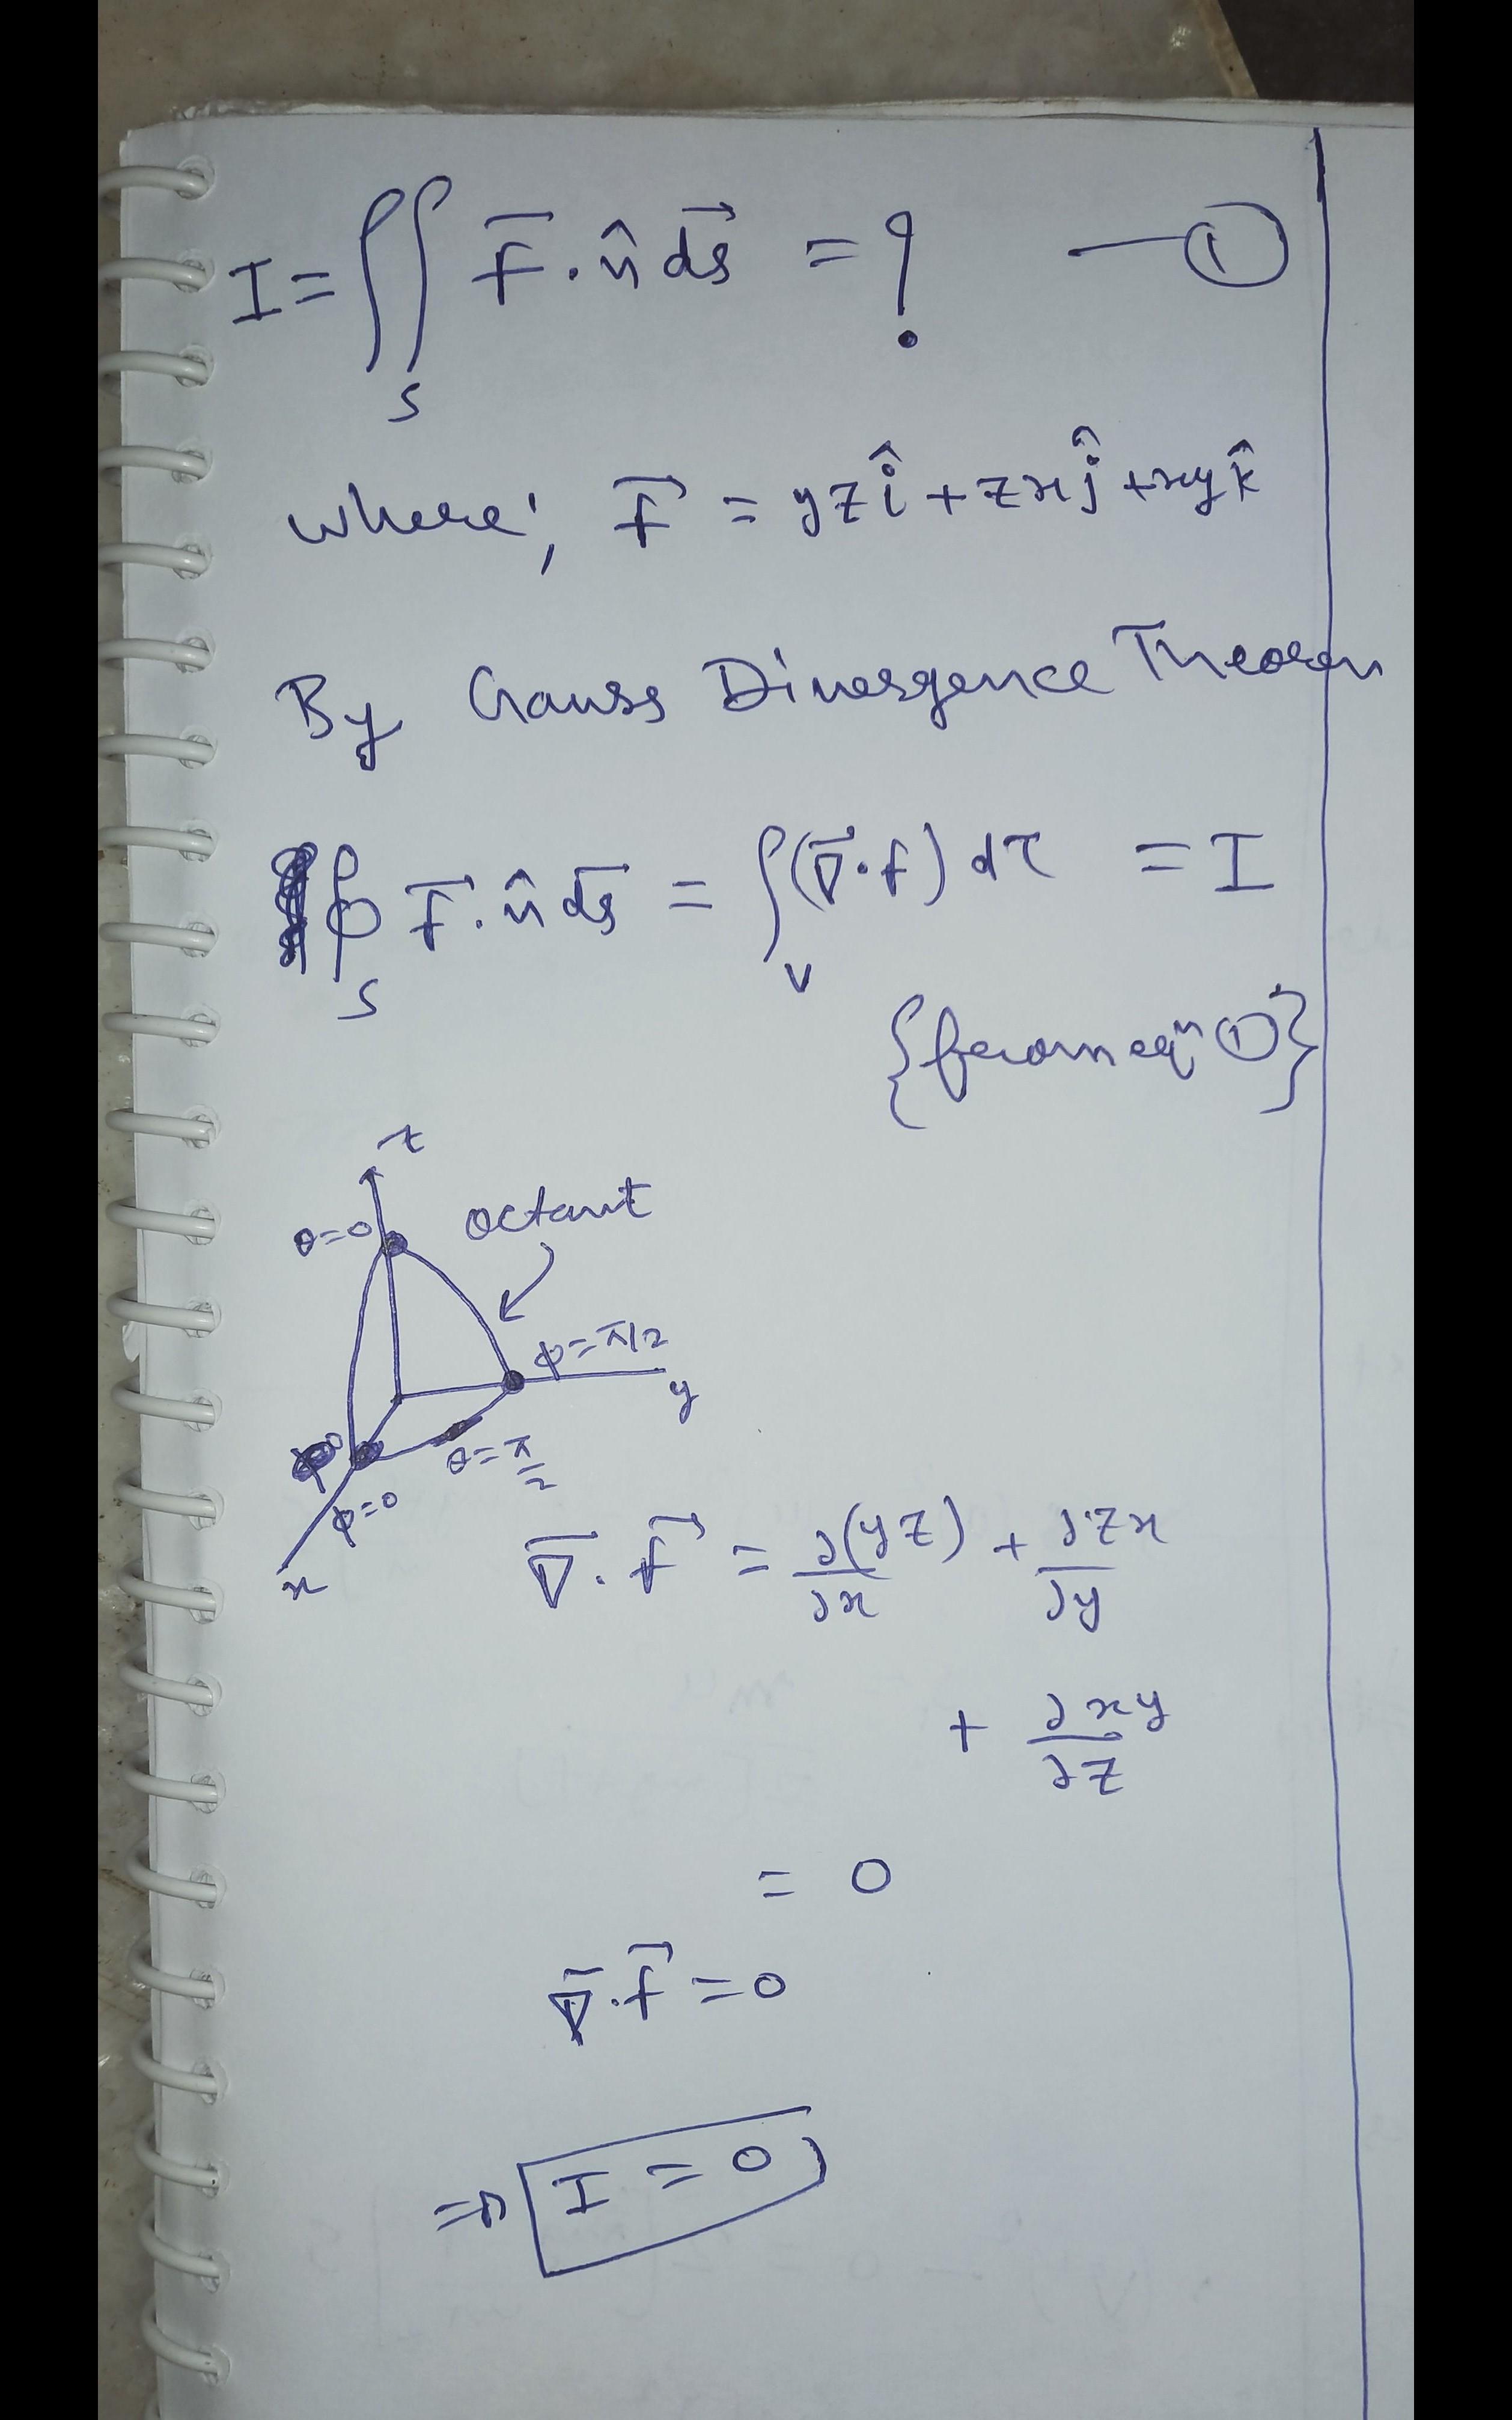 I = ∬ F̅ · n̂ ds⃗ = ? — ①
S
where; F⃗ = yz î + zx ĵ + xy k̂
By Gauss Divergence Theorem
∮ F⃗ · n̂ ds̅ = ∫ (∇̅ · f) dτ = I
S V
{from eqⁿ ①}
z
θ=0 octant
φ=π/2
y
θ=π/2
φ=0
x
∇̅ · F⃗ = ∂(yz)/∂x + ∂zx/∂y
+ ∂xy/∂z
= 0
∇̅ · F⃗ = 0
⇒ I = 0